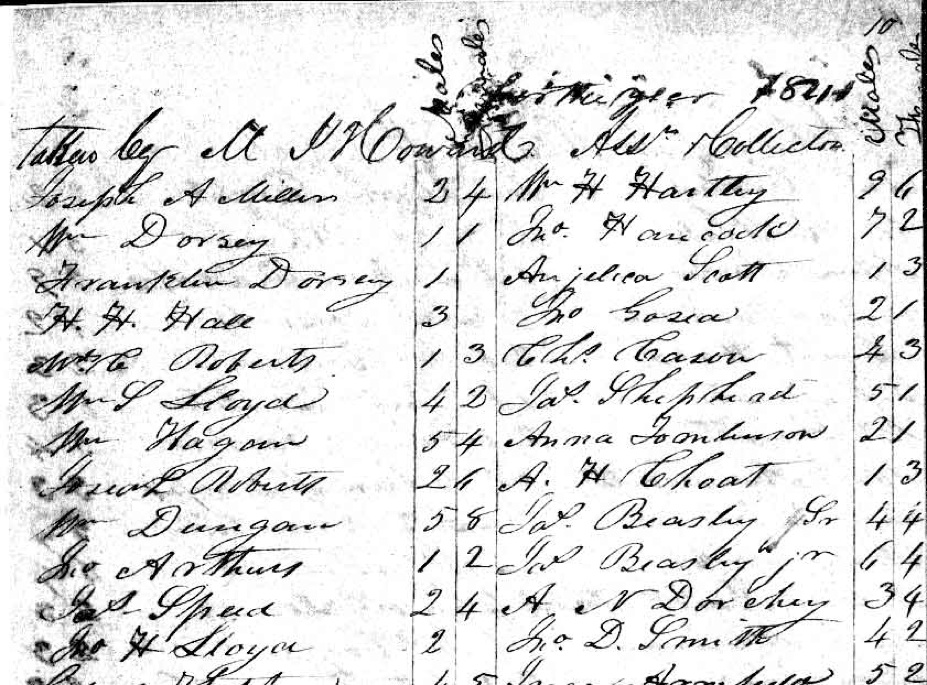 10
Males Females Males
for the year 1824
taken by M J Howard Asst Collector
Joseph A Millers 2 4 Wm H Hartley 9 6
Wm Dorsey 1 1 Jno. Hancock 7 2
Franklin Dorsey 1 Anjelica Scott 1 3
H. H. Hall 3 Jno Gosea 2 1
Wm C Roberts 1 3 Chs. Cason 4 3
Wm S Lloyd 4 2 Jas. Shepherd 5 1
Wm Hagan 5 4 Anna Tomlinson 2 1
Roberts 2 6 A. H Choat 1 3
Wm Dungan 5 8 Jas. Beasley Sr 4 4
Jno Arthurs 1 2 Jas Beasley jr 6 4
Jas Speed 2 4 A N Dorchey 3 4
Jno H Lloyd 2 Jno. D. Smith 4 2
5 2